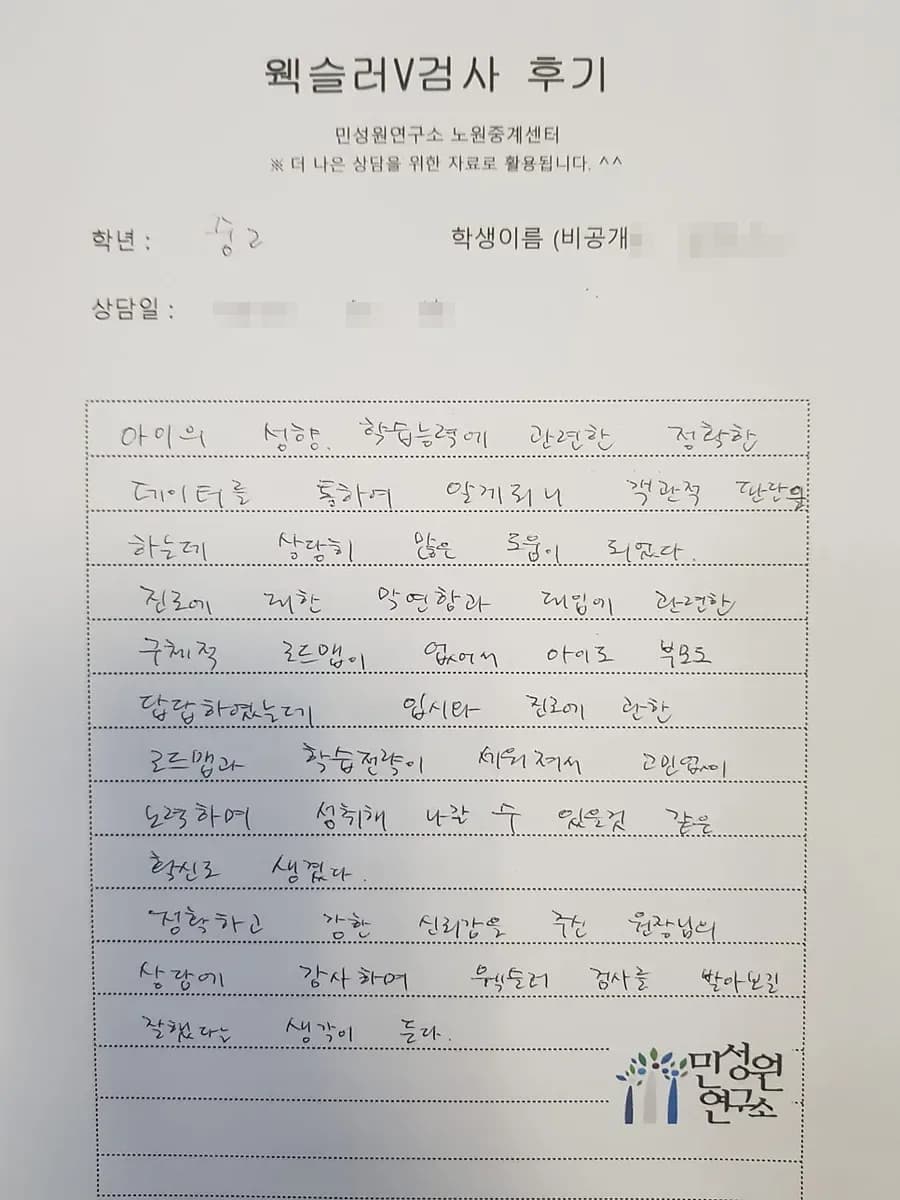 웩슬러V검사 후기
민성원연구소 노원중계센터
※ 더 나은 상담을 위한 자료로 활용됩니다. ^^
학년 : 중2
학생이름 (비공개
상담일 :
아이의 성향. 학습능력에 관련한 정확한
데이터를 통하여 알게되니 객관적 판단을
하는데 상당히 많은 도움이 되었다.
진로에 대한 막연함과 대입에 관련한
구체적 로드맵이 없어서 아이도 부모도
답답하였는데 입시와 진로에 관한
로드맵과 학습전략이 세워져서 고민없이
노력하며 성취해 나갈 수 있을것 같은
확신도 생겼다.
정확하고 강한 신뢰감을 주신 원장님의
상담에 감사하며 웩슬러 검사를 받아보길
잘했다는 생각이 든다.
민성원
연구소